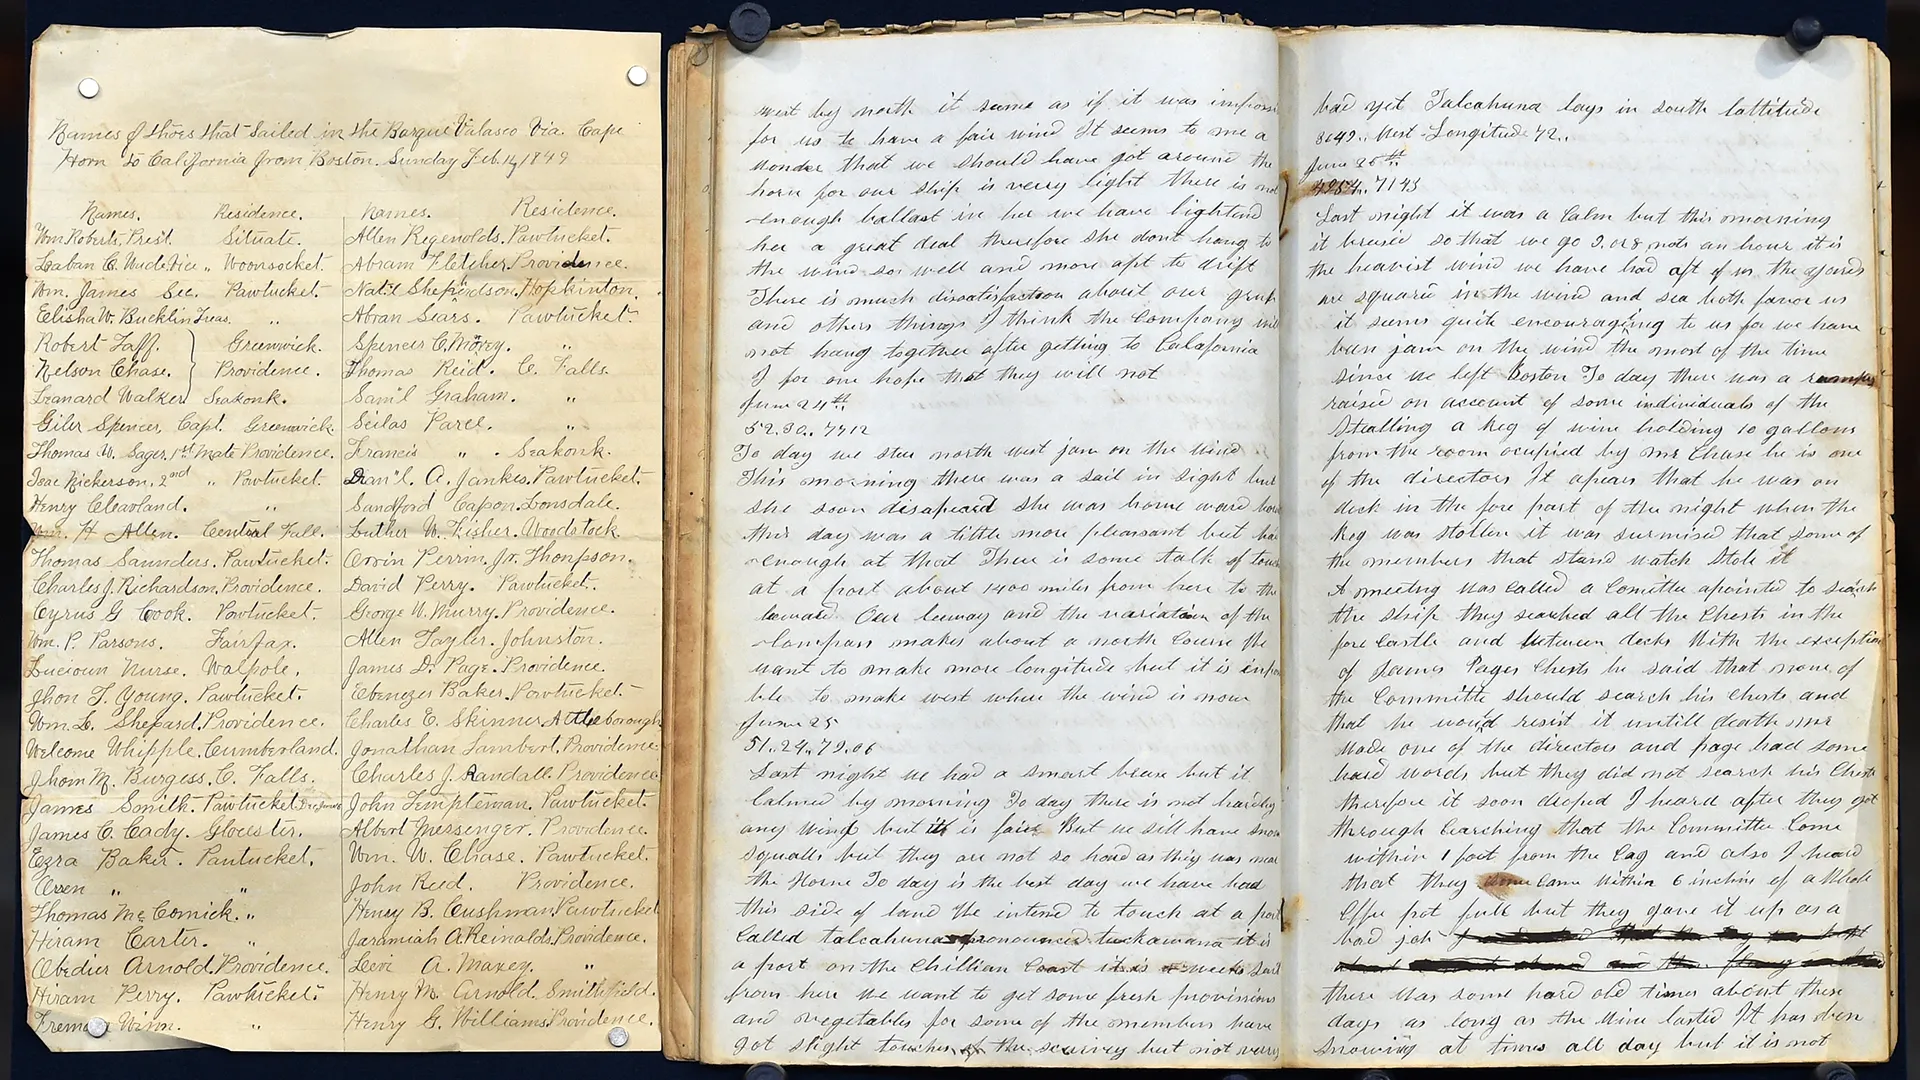 Names of thoes that Sailed in the Barque Valasco Via Cape
Horn to California from Boston. Sunday Feb. 14, 1849
Names. Residence. Names. Residence.
Wm Roberts, Prest. Situate.
Laban C. Wade Vice " Woonsocket.
Wm. James Sec. Pawtucket.
Elisha W. Bucklin Treas. "
Robert Taff. Greenwick.
Nelson Chase. Providence.
Leanard Walker Seakonk.
Giles Spencer, Capt. Greenwick.
Thomas W. Sager. 1st Mate Providence.
Isac Nickerson, 2nd " Pawtucket.
Henry Cleavland. "
Wm. H Allen. Central Fall.
Thomas Saunders. Pawtucket.
Charles J. Richardson. Providence.
Cyrus G Cook. Pawtucket.
Wm. P. Parsons. Fairfax.
Lucioun Nurse. Walpole.
Jhon T. Young. Pawtucket.
Wm. L. Shepard. Providence.
Welcome Whipple. Cumberland.
Jhom M. Burgess. C. Falls.
James Smith. Pawtucket.
James C. Cady. Glouster.
Ezra Baker. Pantucket.
Oren " "
Thomas Mc Comick. "
Hiram Carter. "
Obedier Arnold. Providence.
Hiram Perry. Pawtucket.
Winn. "
Allen Regenolds. Pawtucket.
Abram Fletcher. Providence.
Nat'l Shepardson. Hopkinton.
Abran Sears. Pawtucket.
Spencer C. Moxey. "
Thomas Reid. C. Falls.
Sam'l Graham. "
Seilas Parel. "
Francis " . Seakonk.
Dan'l. A. Jankes. Pawtucket.
Sandford Capon. Lonsdale.
Luther W. Fisher. Woodstock
Orrin Perrin, Jr. Thonpson.
David Perry. Pawtucket.
George W. Murry. Providence.
Allen Tayler. Johnston.
James D. Page. Providence.
Ebenezer Baker. Pawtucket.
Charles E. Skinner. Attleborough
Jonathan Lambert. Providence
Charles J. Randall. Providence
John Templeman. Pawtucket.
Albert Messenger. Providence.
Wm. W. Chase. Pawtucket.
John Reed. Providence.
Henry B. Cushman. Pawtucket
Jaramiah A. Reinalds. Providence.
Leevi A. Maxey. "
Henry M. Arnold. Smithfield.
Henry G. Williams. Providence.
west by north it sumes as if it was imposs
for us to have a fair wind It seems to me a
wonder that we should have got around the
horn for our ship is verry light there is not
enough ballast in her we have lightend
her a great deal therefore she dont hang to
the wind so well and more apt to drift
There is much disatisfaction about our grub
and others things I think the Company will
not hang together after getting to Calafornia
I for one hope that they will not
June 24th
52.30.. 7712
To day we stee north west jam on the wind
This morning there was a sail in sight but
she soon disapeard she was home ward bound
this day was a little more pleasant but bad
enough at that There is some talk of touch
at a port about 1400 miles from here to the
leward Our leeway and the variation of the
Compass makes about a north Course We
want to make more longitude but it is impo
ble to make west where the wind is now
June 25
51..24..79.06
Last night we had a smart brease but it
Calmed by morning To day there is not hardly
any wind but it is fair But we still have snow
squalls but they are not so hard as they was near
the Horne To day is the best day we have had
this side of land We intend to touch at a port
Called talcahuna pronounced tuckawana it is
a port on the Chillian Coast it is a weeks sail
from here we want to get some fresh provisions
and vegetables for some of the members have
got slight touches of the scurvey but not verry
bad yet Talcahuna lays in south lattitude
3649.. West Longitude 72..
June 26th
7143
Last night it was a Calm but this morning
it breised so that we go 7 or 8 nots an hour it is
the heavist wind we have had aft of us the yards
are square in the wind and sea both favor us
it seems quite encouraging to us for we have
been jam on the wind the most of the time
since we left Boston To day there was a rumpus
raised on account of some individuals of the
Stealling a Keg of wine holding 10 gallons
from the room ocupied by mr Chase he is one
of the directors It apears that he was on
deck in the fore part of the night when the
Keg was stollen it was surmised that some of
the members that stand watch stole it
A meeting was called a Comittee apointed to search
the ship they seached all the Chests in the
fore Castle and between decks With the exception
of James Pages Chests he said that none of
the Committe should search his Chests and
that he would resist it untill death mr
Wade one of the directors and page had some
hard words but they did not search his Chests
therefore it soon droped I heard after they got
through Cearching that the Committee Come
within 1 foot from the Cag and also I heard
that they Came within 6 inches of a Whole
Coffee pot full but they gave it up as a
bad job
there was some hard old times about these
days as long as the Wine lasted It has been
snowing at times all day but it is not